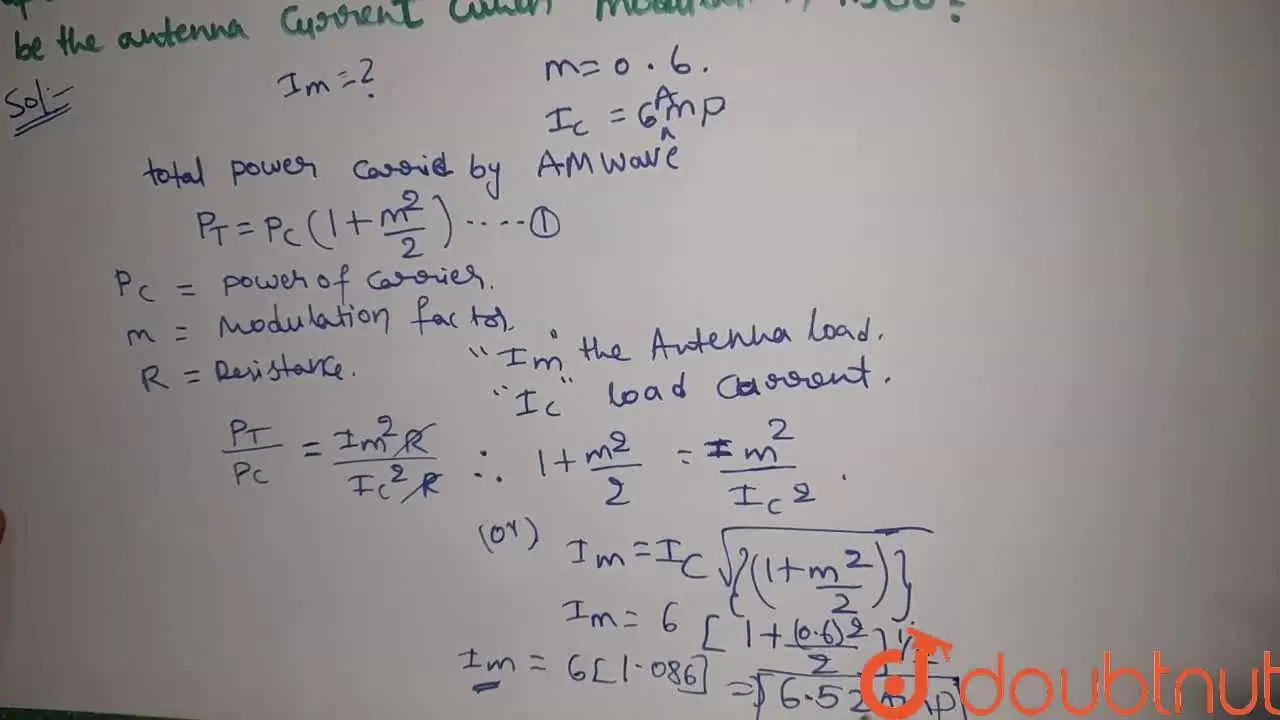 be the antenna Current when
Sol:-
Im = ?
m = 0.6.
Ic = 6 Amp
total power carried by AM wave
PT = Pc (1 + m²/2) ..... ①
Pc = power of carrier.
m = Modulation factor.
R = Resistance.
"Im" the Antenna load.
"Ic" load Current.
PT/Pc = Im²R/Ic²R ∴ 1 + m²/2 = Im²/Ic².
(or) Im = Ic √{(1 + m²/2)}
Im = 6 [1 + (0.6)²/2]
Im = 6 [1.086] = 6.52 Amp
doubtnut